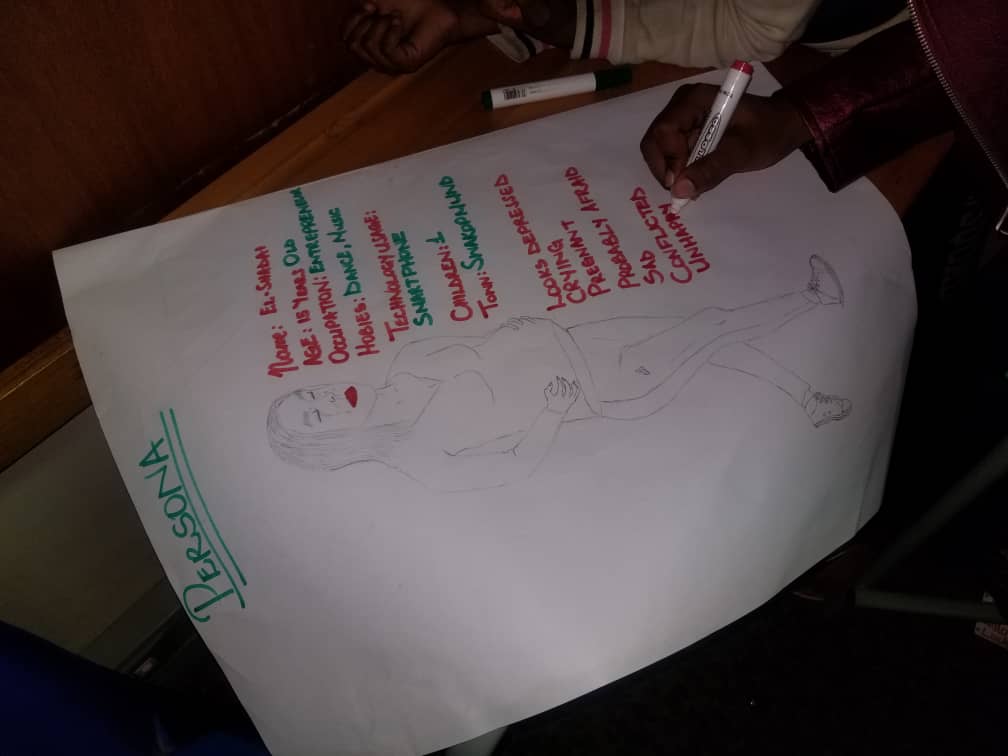 PERSONA
NAME: EL-SARAH
AGE: 15 YEARS OLD
OCCUPATION: ENTREPRENEUR
HOBIES: DANCE, MUSIC
TECHNOLOGY USAGE:
SMARTPHONE
CHILDREN: 1
TOWN:
LOOKS DEPRESSED
CRYING
PREGNANT
PROBABLY AFRAID
PROBABLY
SAD
CONFLICTED
UNHAPPY